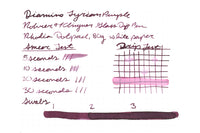 Diamine Tyrian Purple
Rohrer & Klingner Glass Dip Pen
Rhodia Dotpad, 80g white paper
Smear Test Drip Test
5 seconds
10 seconds
20 seconds
30 seconds
Swabs
2 3